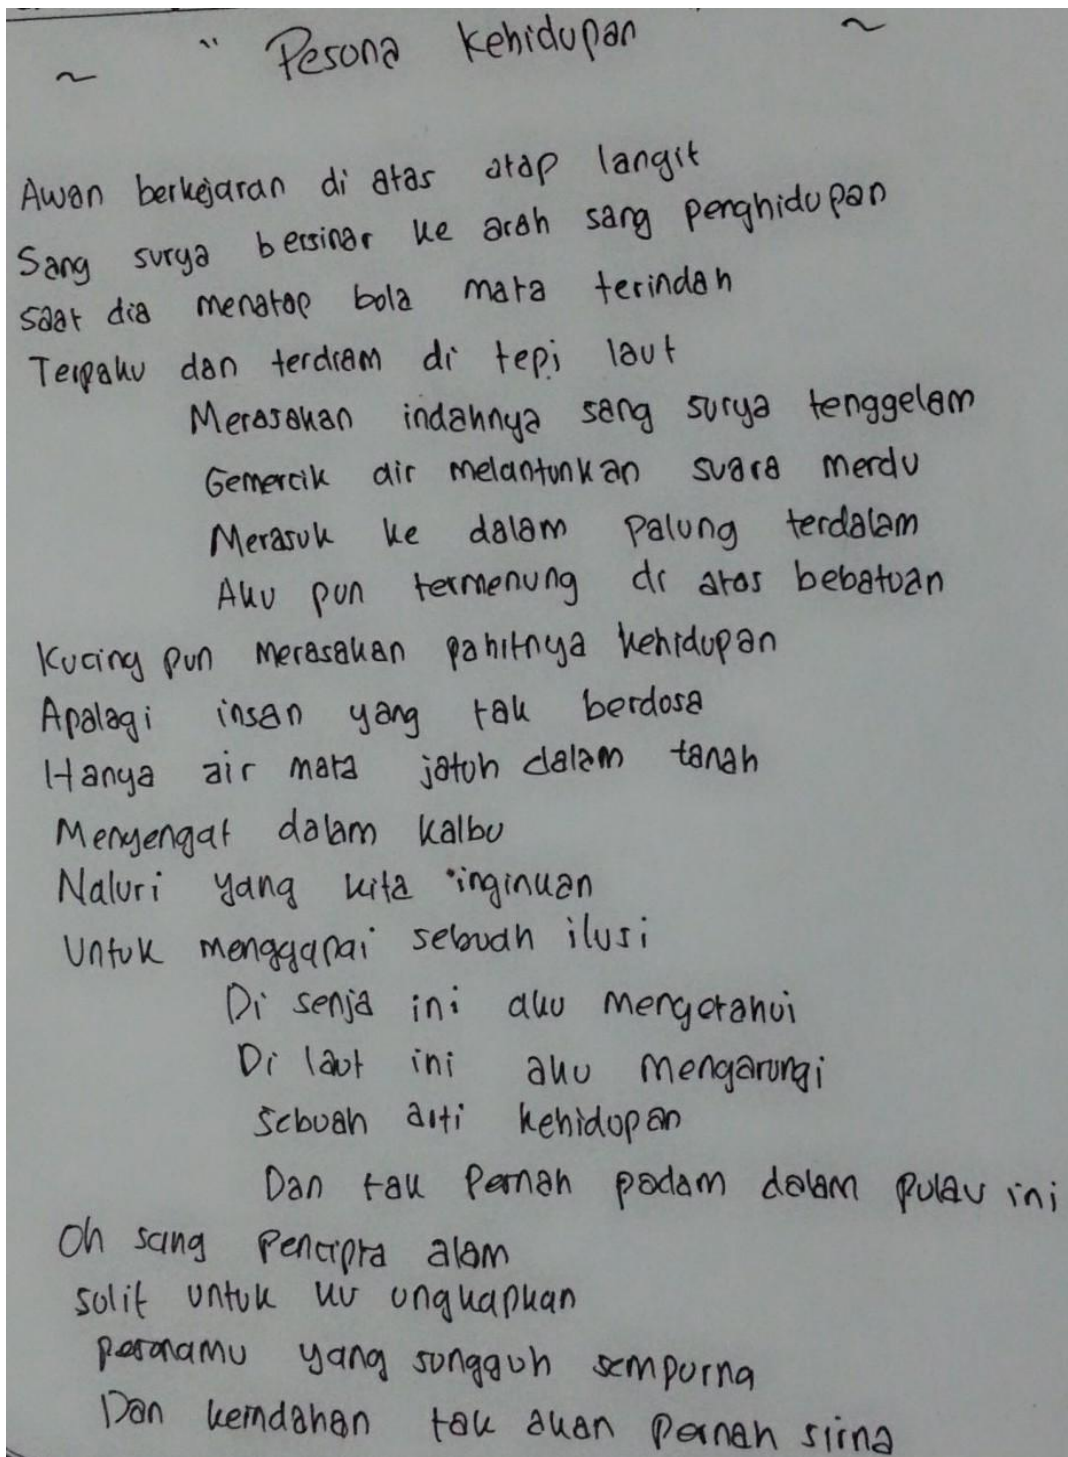 ~ " Pesona kehidupan ~
Awan berkejaran di atas atap langit
Sang surya bersinar ke arah sang penghidupan
saat dia menatap bola mata terindah
Terpaku dan terdiam di tepi laut
Merasakan indahnya sang surya tenggelam
Gemercik air melantunkan suara merdu
Merasuk ke dalam palung terdalam
Aku pun termenung di atas bebatuan
Kucing pun merasakan pahitnya kehidupan
Apalagi insan yang tak berdosa
Hanya air mata jatuh dalam tanah
Menyengat dalam kalbu
Naluri yang kita inginkan
Untuk menggapai sebuah ilusi
Di senja ini aku mengetahui
Di laut ini aku mengarungi
sebuah arti kehidupan
Dan tak Pernah padam dalam pulau ini
Oh sang Pencipta alam
sulit untuk ku ungkapkan
pesonamu yang sungguh sempurna
Dan keindahan tak akan Pernah sirna